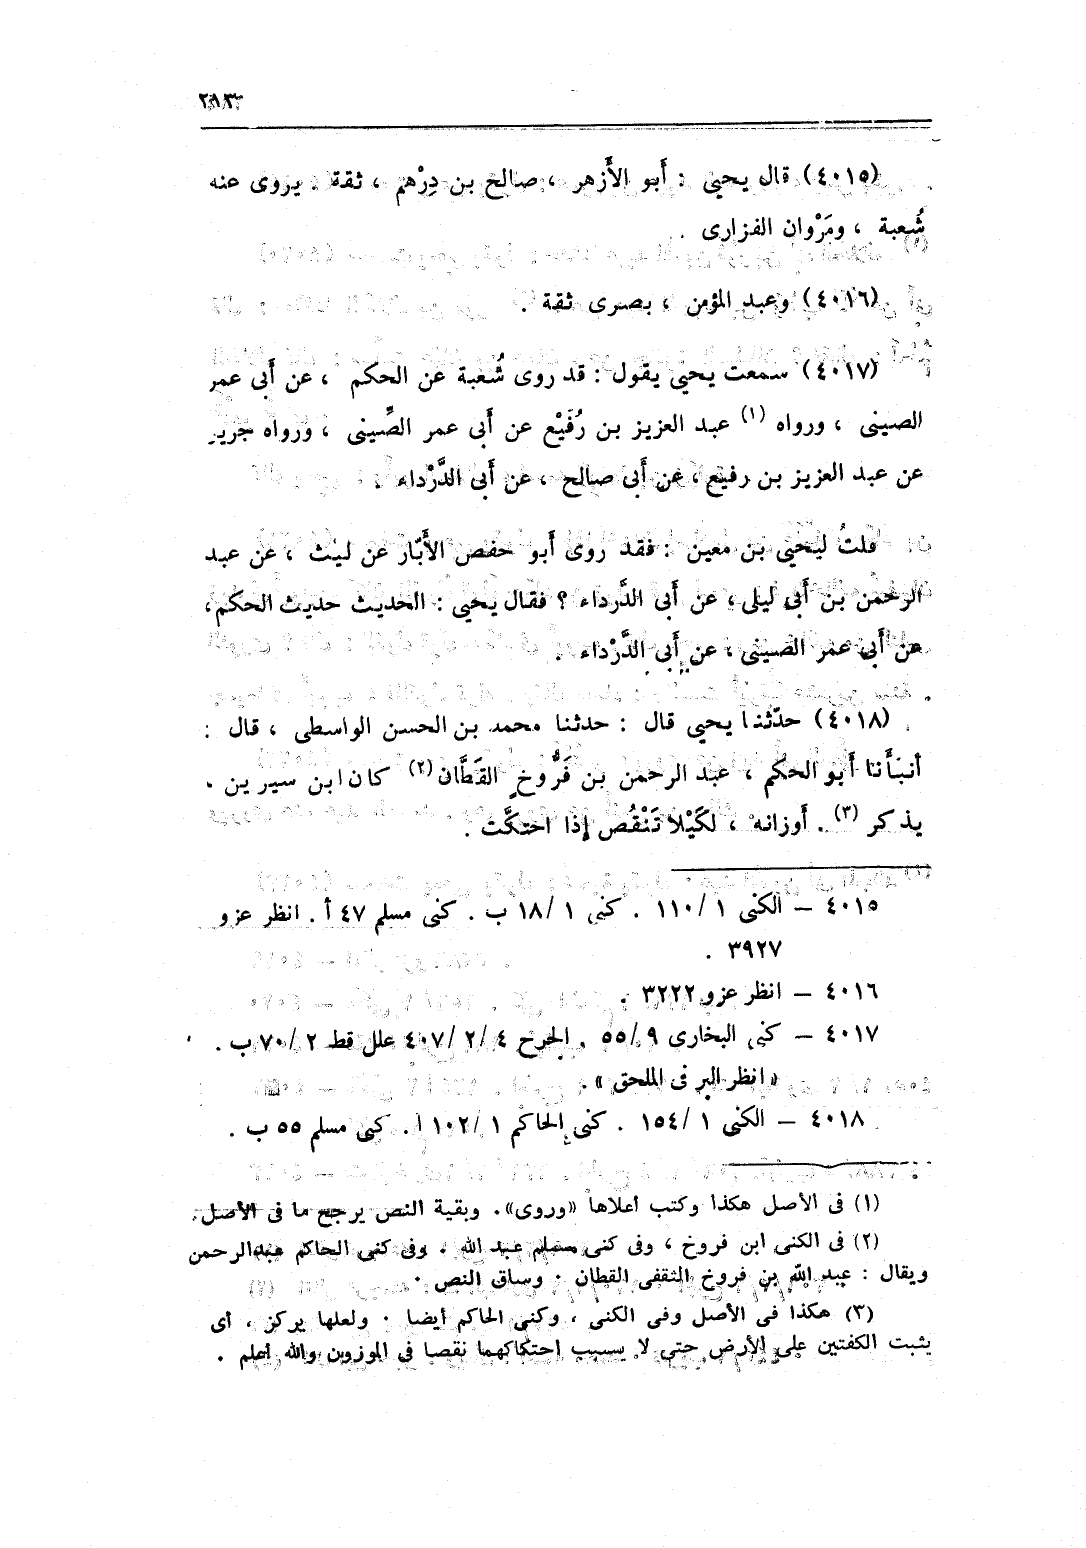 ٢٩٣
(٤٠١٥) قال يحيى : أبو الأَزهر ، صالح بن دِرْهم ، ثقة . يروى عنه
شُعبة ، ومَرْوان الفزارى .
(٤٠١٦) وعبد المؤمن ، بصرى ثقة .
(٤٠١٧) سمعت يحيى يقول : قد روى شُعبة عن الحكم ، عن أَبى عمر
الصينى ، ورواه (١) عبد العزيز بن رُفَيْع عن أَبى عمر الصِّينى ، ورواه جرير
عن عبد العزيز بن رفيع ، عن أَبى صالح ، عن أَبى الدَّرْداء .
قلتُ ليحيى بن معين : فقد روى أَبو حفص الأَبّار عن ليث ، عن عبد
الرحمن بن أَبى ليلى ، عن أَبى الدَّرداء ؟ فقال يحيى : الحديث حديث الحكم ،
عن أَبى عمر الصينى ، عن أَبى الدَّرْداء .
(٤٠١٨) حدّثنا يحيى قال : حدثنا محمد بن الحسن الواسطى ، قال :
أنبَأَنا أَبو الحكم ، عبد الرحمن بن فَرُّوخ القَطَّان (٢) كان ابن سيرين
يذكر (٣) . أَوزانه ، لكَيْلا تَنْقُص إِذا احتكَّت .
٤٠١٥ – الكنى ١ /١١٠ . كنى ١ /١٨ ب . كنى مسلم ٤٧ أ . انظر عزو
٣٩٢٧ .
٤٠١٦ – انظر عزو ٣٢٢٢ .
٤٠١٧ – كنى البخارى ٩ /٥٥ . الجرح ٤ /٢ /٤٠٧ علل قط ٢ /٧٠ ب .
« انظر البر فى الملحق » .
٤٠١٨ – الكنى ١ /١٥٤ . كنى الحاكم ١ /١٠٢ أ . كنى مسلم ٥٥ ب .
(١) فى الأصل هكذا وكتب أعلاها «وروى» . وبقية النص يرجح ما فى الأصل .
(٢) فى الكنى ابن فروخ ، وفى كنى مسلم عبد الله . وفى كنى الحاكم عبد الرحمن
ويقال : عبد الله بن فروخ الثقفى القطان . وساق النص .
(٣) هكذا فى الأصل وفى الكنى ، وكنى الحاكم أيضا . ولعلها يركز ، أى
يثبت الكفتين على الأرض حتى لا يسبب احتكاكهما نقصا فى الموزون والله أعلم .